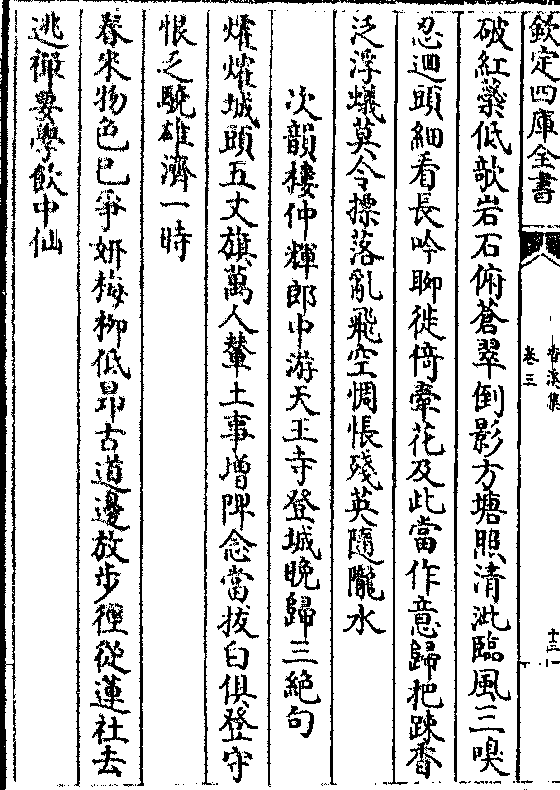 欽定四庫全書
香溪集
卷三
十三
破紅蘂低欹岩石俯蒼翠倒影方塘照清泚臨風三嗅
忍迴頭細看長吟聊徙倚牽花及此當作意歸把踈香
泛浮蟻莫令摽落亂飛空惆悵殘英隨隴水
次韻樓仲輝郎中游天王寺登城晚歸三絶句
燿燿城頭五丈旗萬人輦土事增陴念當拔白俱登守
恨乏驍雄濟一時
春來物色已爭妍梅柳低昂古道邊放步徑從蓮社去
逃禪要學飲中仙